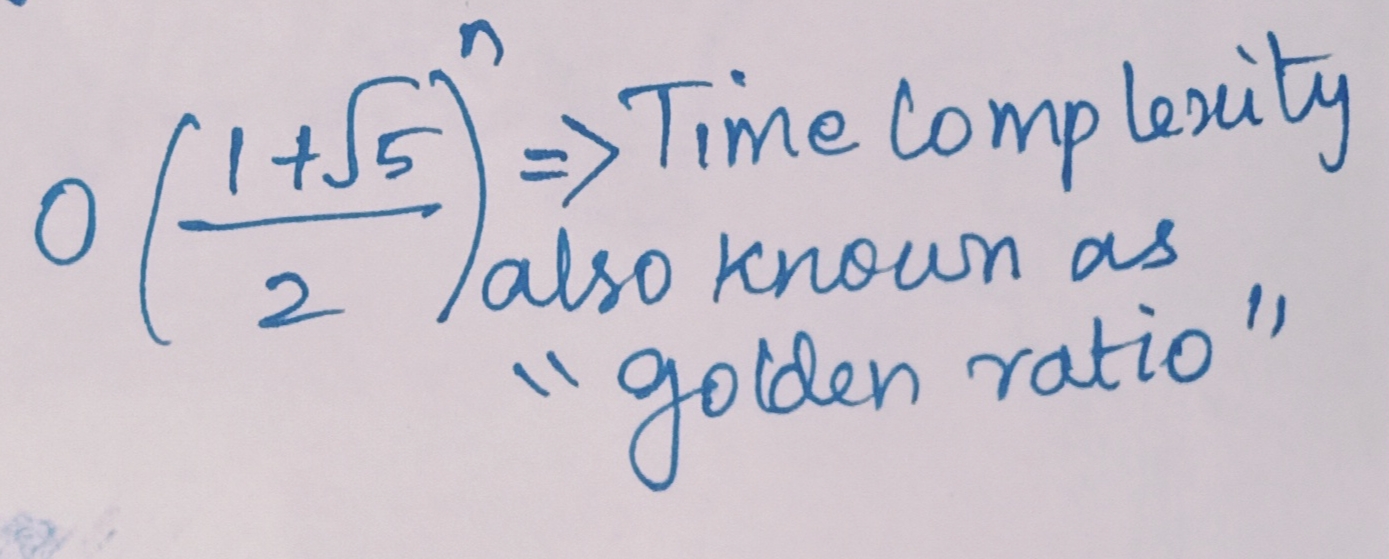 O((1+√5)/2)ⁿ => Time Complexity
also known as
"golden ratio"